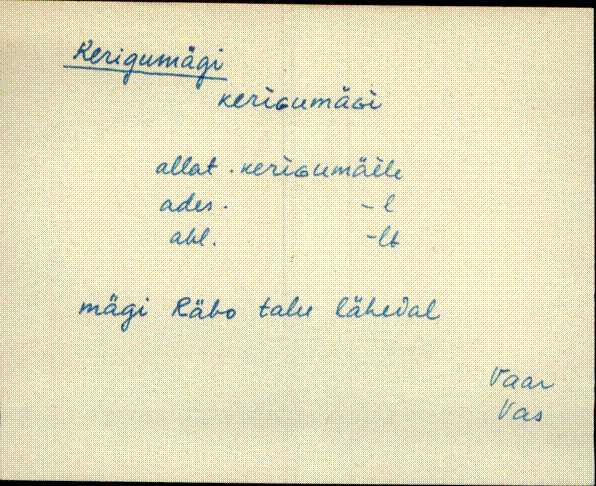 Kerigumägi
keriɢumäɢi
allat. keriɢumäile
ades. -l
abl. -lt
mägi Räbo talu lähedal
Vaar
Vas